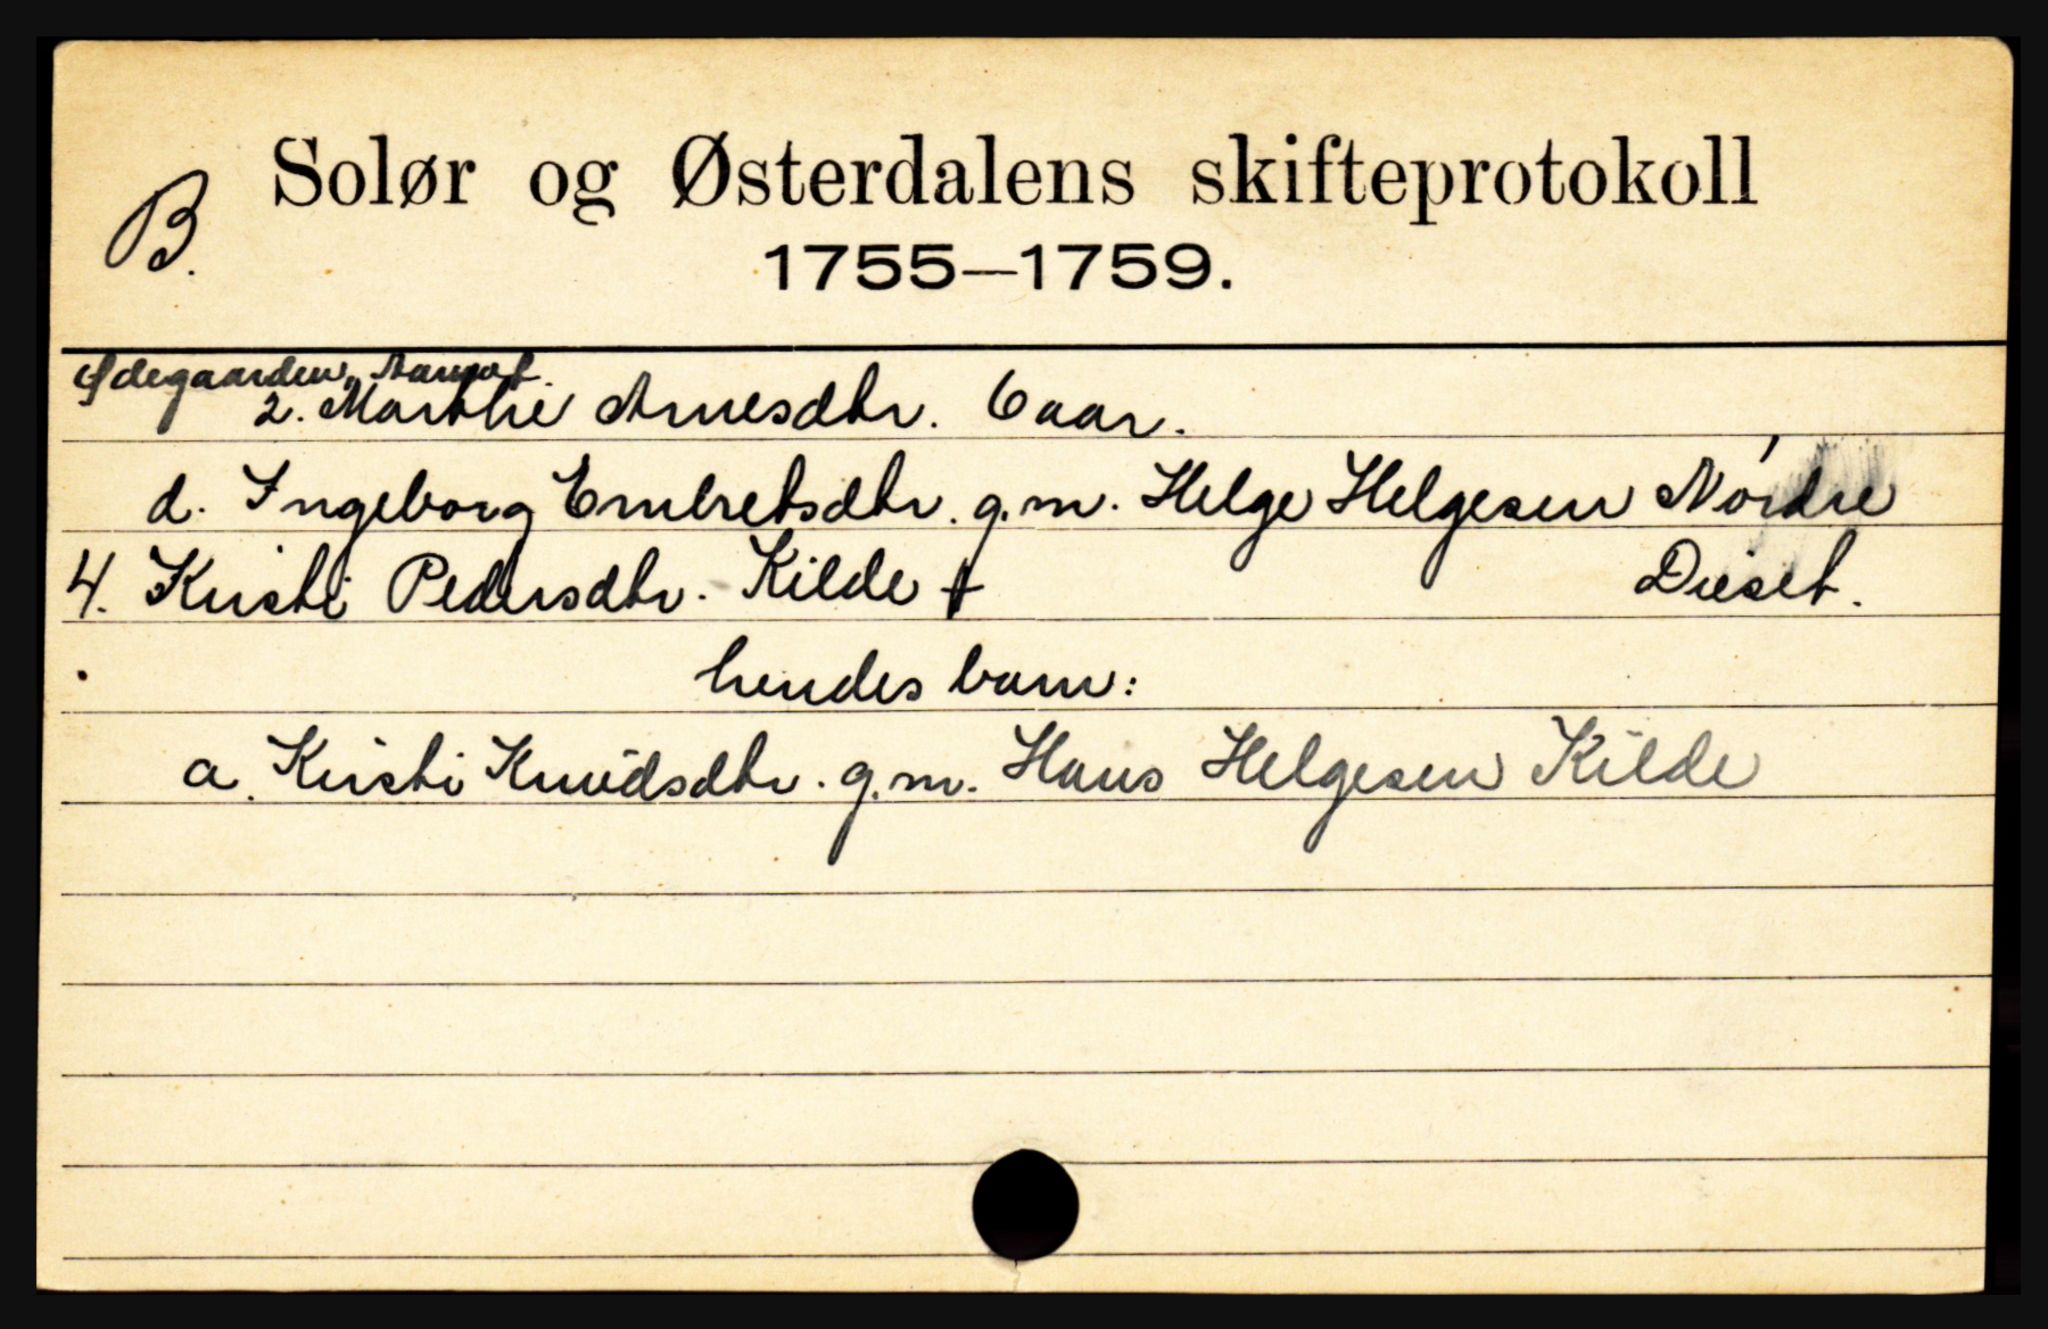 B. Solør og Østerdalens skifteprotokoll
1755—1759.
Ødegaarden, Aamot.
2. Marthe Arnesdtr. 6 aar.
d. Ingeborg Embretsdtr. g.m. Helge Helgesen Nordre
Dieset.
4. Kirsti Pedersdtr. Kilde †
hendes barn:
a. Kirsti Knudsdtr. g.m. Hans Helgesen Kilde